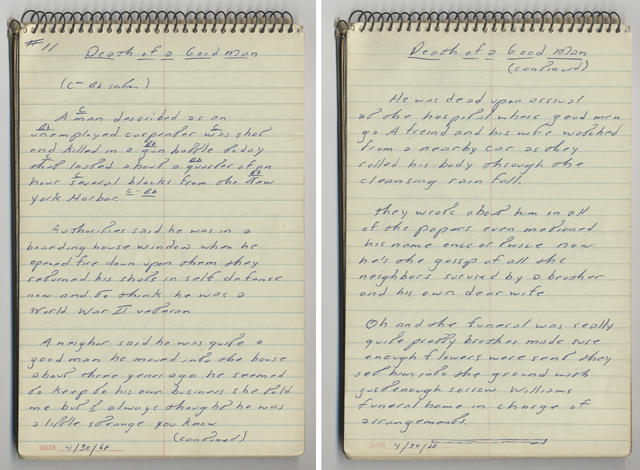 #11
Death of a Good Man
(C - Bb sutan)
C
A man described as an
Bb C
unemployed carpenter was shot
Bb
and killed in a gun battle today
C Bb
that lasted about a quarter of an
C Bb
hour several blocks from the New
York Harbor. C - Bb
Authorities said he was in a
boarding house window when he
opened fire down upon them they
returned his shots in self defense
now and to think he was a
World War II veteran
A neighor said he was quite a
good man he moved into the house
about three years ago he seemed
to keep to his own business she told
me but I always thought he was
a little strange you know
(continued)
DATE 4/30/68
Death of a Good Man
(continued)
He was dead upon arrival
at the hospital where good men
go A freind and his wife watched
from a nearby car as they
rolled his body through the
cleansing rain fall.
they wrote about him in all
of the papers even mentioned
his name once or twice now
he's the gossip of all the
neighbors survived by a brother
and his own dear wife.
Oh and the funeral was really
quite pretty brother made sure
enough flowers were sent they
set him into the ground with
just enough sorrow Williams
funeral home in charge of
arrangements.
DATE 4/30/68